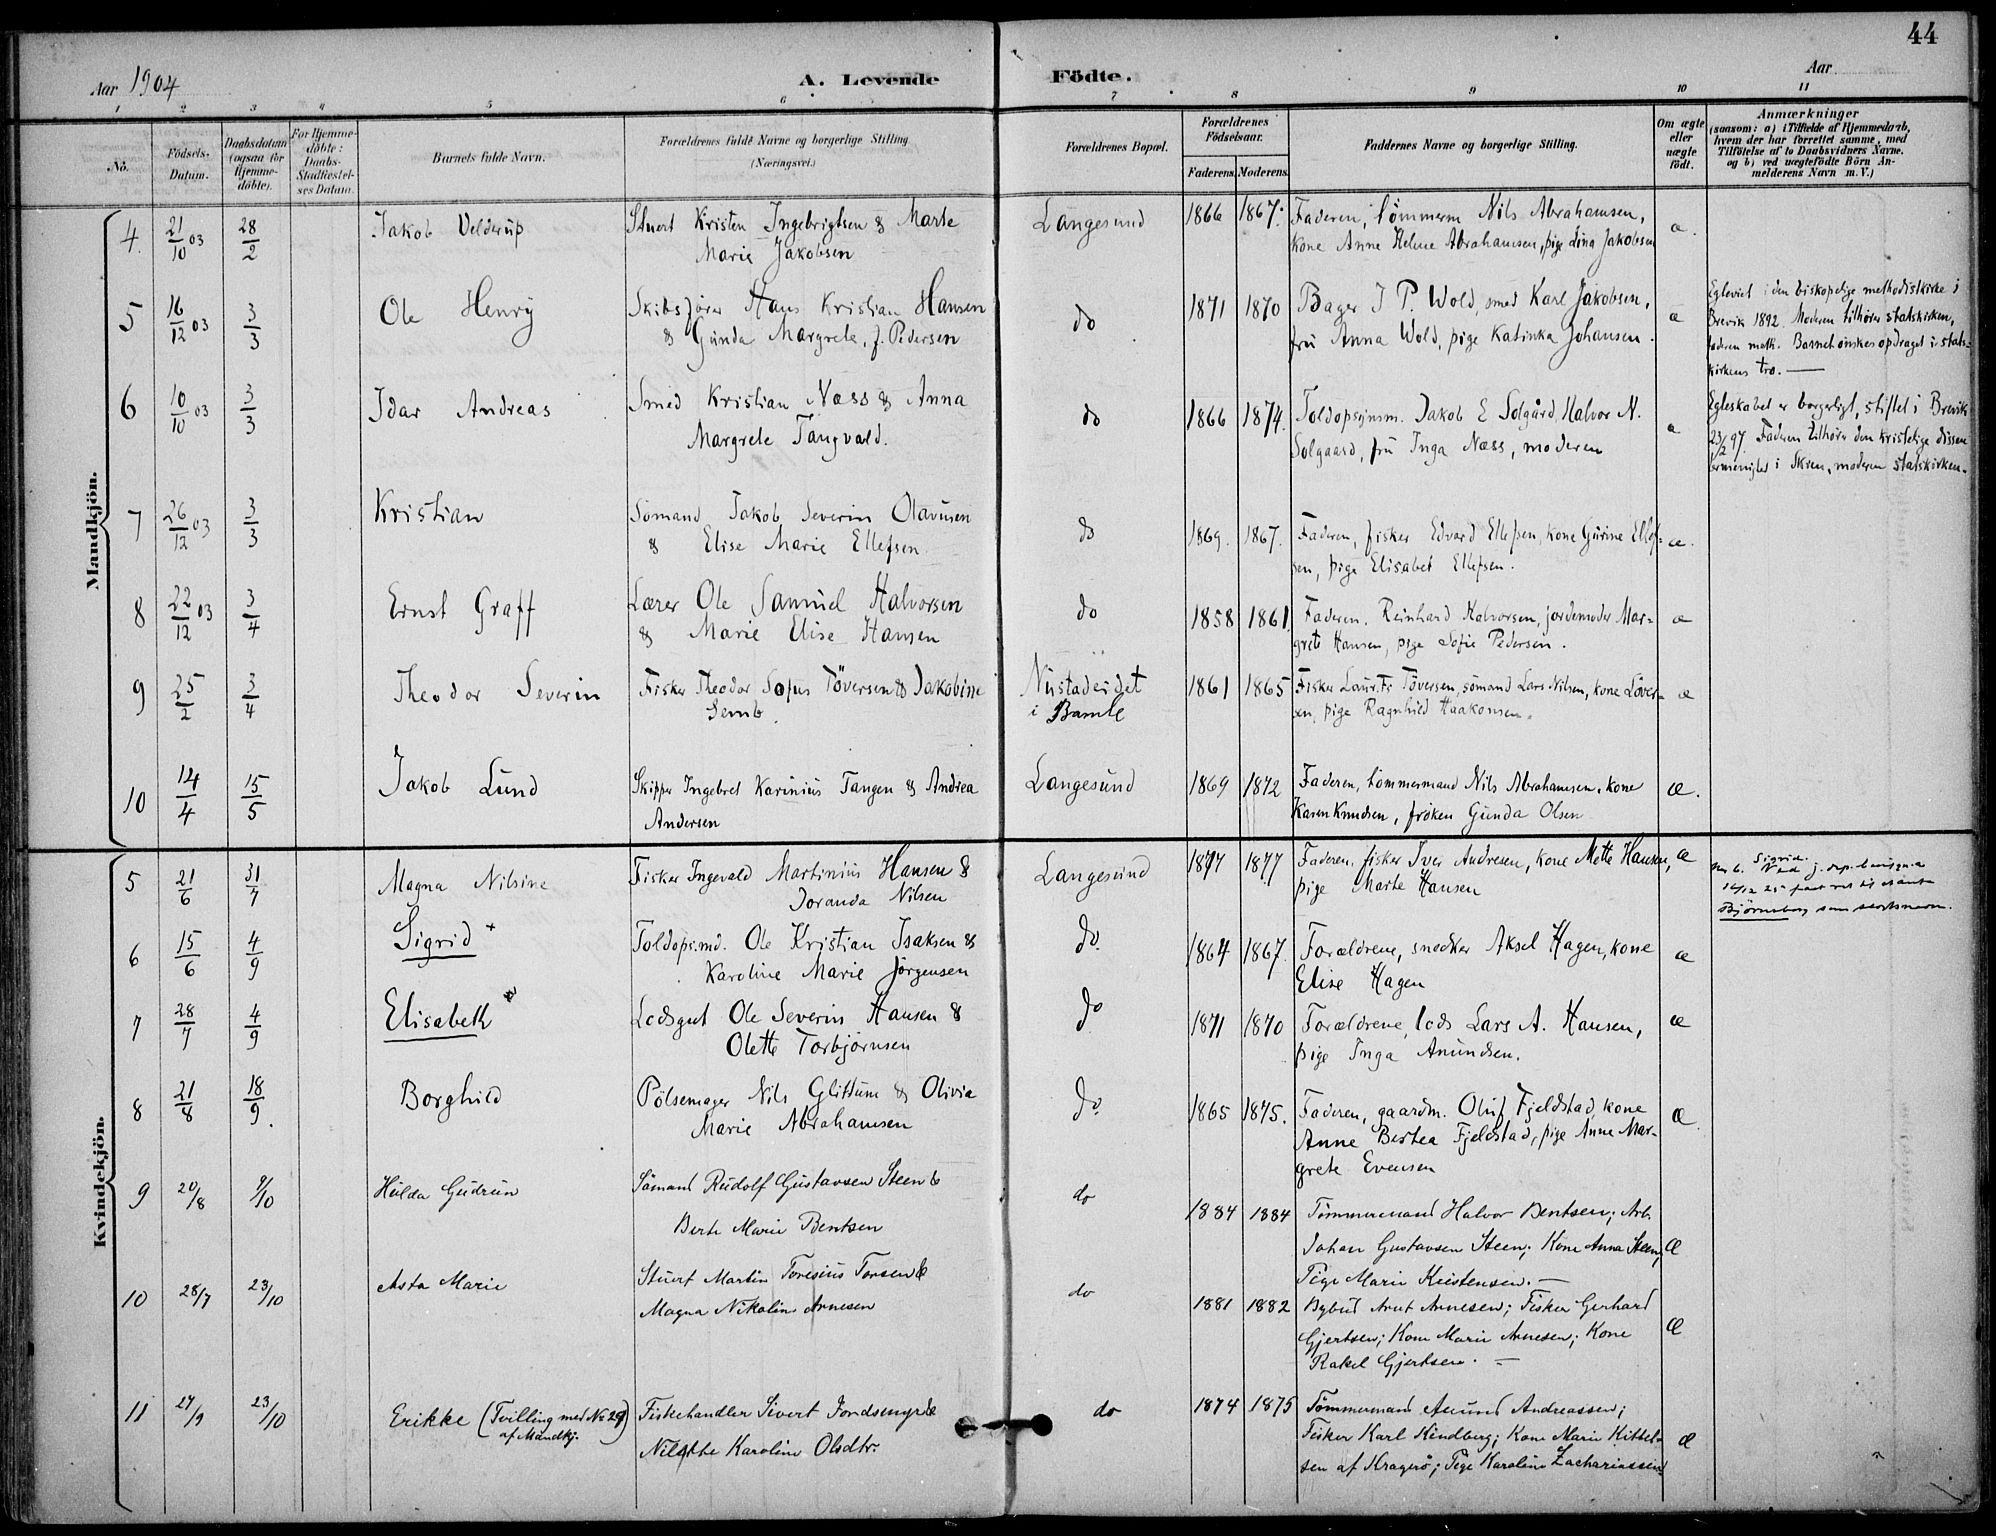 44
Aar 1904 A. Levende Födte. Aar
1 2 3 4 5 6 7 8 9 10 11
No. Födsels-Datum. Daabsdatum (ogsaa for Hjemmedöbte). For Hjemmedöbte: Daabs-Stadfæstelses Datum. Barnets fulde Navn. Forældrenes fulde Navne og borgerlige Stilling (Næringsvei.) Forældrenes Bopæl. Forældrenes Födselsaar. Faderens. Moderens. Faddernes Navne og borgerlige Stilling. Om ægte eller uægte födt. Anmærkninger (saasom: a) i Tilfælde af Hjemmedaab, hvem der har forrettet samme, med Tilföielse af to Daabsvidners Navne. og b) ved uægtefödte Börn Anmelderens Navn m. V.)
Mandkjön.
4 21/10 03 28/2 Jakob Velderup Stuert Kristen Ingebrigtsen & Marte Langesund 1866 1867. Faderen, tömmerm Nils Abrahamsen, æ.
Marie Jakobsen kone Anne Helene Abrahamsen, pige Lina Jakobsen
5 16/12 03 3/3 Ole Henry Skibsförer Hans Kristian Hansen do 1871 1870 Bager J P. Wold, smed Karl Jakobsen, æ Egteviet i den biskopelige methodistkirke i
& Gunda Margrete, f. Pedersen fru Anna Wold, pige Katinka Johansen. Brevik 1892. Moderen tilhörer statskirken,
faderen meth. Barnet önskes opdraget i stats-
kirkens tro. —
6 10/10 03 3/3 Idar Andreas Smed Kristian Næss & Anna do 1866 1874. Toldopsynsm. Jakob E Solgård, Halvor N. æ Egteskabet er borgerligt, stiftet i Brevik
Margrete Tangvald. Solgaard, fru Inga Næss, moderen 23/2 97. Faderen tilhörer den kristelige dissen
termenighet i Skien, moderen statskirken.
7 26/12 03 3/3 Kristian Sömand Jakob Severin Olavusen do 1869. 1867. Faderen, fisker Edvard Ellefsen, kone Gurine Ellef- æ.
& Elise Marie Ellefsen. sen, pige Elisabet Ellefsen.
8 22/12 03 3/4 Ernst Graff Lærer Ole Samuel Halvorsen do 1858 1861 Faderen. Reinhard Halvorsen, jordemoder Mar- æ
& Marie Elise Hansen grete Hansen, pige Sofie Pedersen.
9 25/2 3/4 Theodor Severin Fisker Theodor Sofus Töversen & Jakobine Nustadeidet 1861 1865 Fisker Laurits Töversen, sömand Lars Nilsen, kone Töver- æ
Semb. i Bamle sen, pige Ragnhild Haakonsen.
10 14/4 15/5 Jakob Lund Skipper Ingebret Karinius Tangen & Andrea Langesund 1869 1872 Faderen, tömmermand Nils Abrahamsen, kone æ.
Andersen Karen Knudsen, fröken Gunda Olsen
Kvindekjön.
5 21/6 31/7 Magna Nilsine Fisker Ingevald Martinius Hansen & Langesund 1877 1877 Faderen, fisker Iver Andresen, kone Mette Hansen, æ No 6. Sigrid.
Joranda Nilsen pige Marte Hansen
Björnsborg som slektsnavn.
6 15/6 4/9 Sigrid + Toldops.md. Ole Kristian Isaksen & do. 1864 1867. Forældrene, snedker Aksel Hagen, kone æ
Karoline Marie Jörgensen Elise Hagen
7 28/7 4/9 Elisabeth Lodsgut Ole Severin Hansen & do 1871 1870 Forældrene, lods Lars A. Hansen, æ
Olette Torbjörnsen pige Inga Anundsen.
8 21/8 18/9. Borghild Pölsemager Nils Glittum & Olivia do. 1865 1875. Faderen, gaardm. Oluf Fjeldstad, kone æ.
Marie Abrahamsen Anne Bertea Fjeldstad, pige Anne Mar-
grete Evensen
9 20/8 9/10 Hulda Gudrun Sömand Rudolf Gustavsen Steen & do 1884 1884 Tömmermand Halvor Bentsen; Arb.
Berte Marie Bentsen Johan Gustavsen Steen; Kone Anna Steen; Æ
Pige Marie Kristensen. —
10 28/7 23/10 Asta Marie Stuert Martin Toresius Torsen & do 1881 1882 Bybud Arnt Arnesen; Fisker Gerhard
Magna Nikoline Arnesen Gjertsen; Kone Marie Arnesen; Kone Æ
Rakel Gjertsen. —
11 27/9 23/10 Erikke (Tvilling med No 29) Fiskehandler Sivert Jordsmyr & do 1874 1875 Tömmermand Amund Andreassen;
af Mandkj. Nilette Karoline Olsdtr. Fisker Karl Kindberg; Kone Marie Kittel- Æ
sen af Kragerö; Pige Karoline Zachariassen